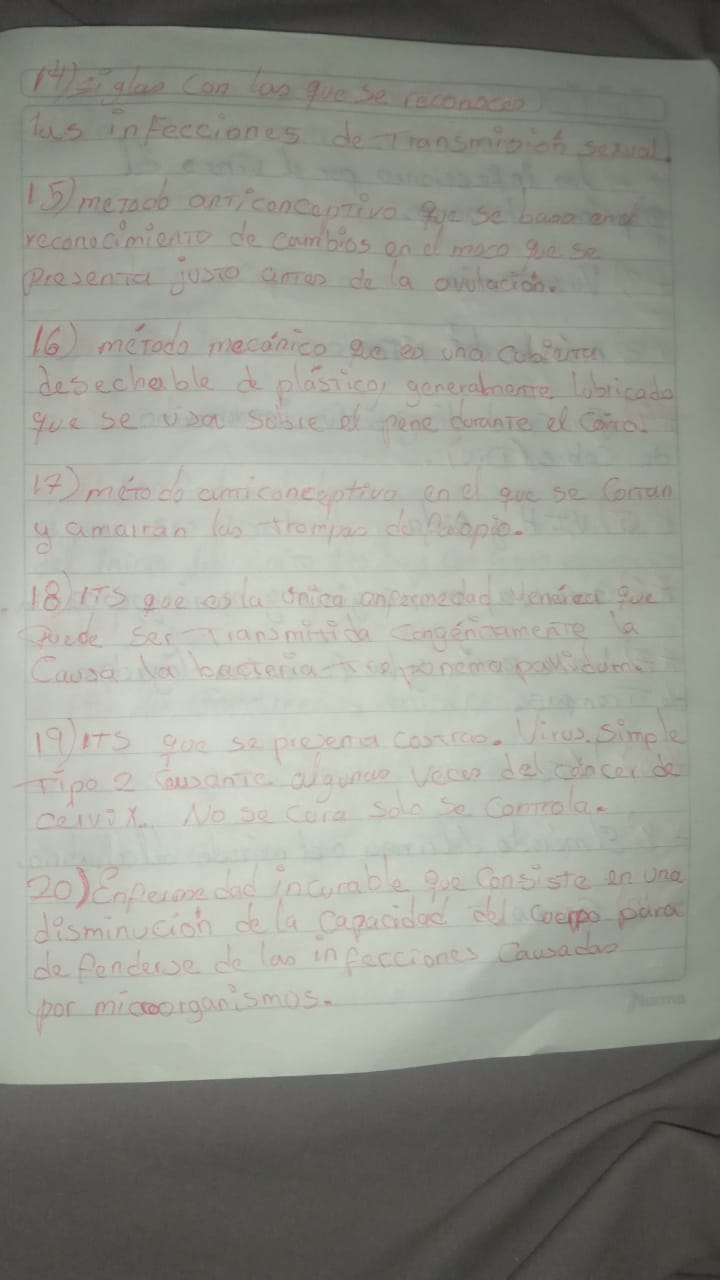 14) siglas con las que se reconocen
las infecciones de Transmisión sexual.
15) metodo anticonceptivo que se basa en el
reconocimiento de cambios en el moco que se
presenta justo antes de la ovulación.
16) método mecánico que es una cubierta
desechable de plástico, generalmente lubricado
que se usa sobre el pene durante el coito.
17) método anticonceptivo en el que se cortan
y amarran las trompas de falopio.
18) ITS que es la única enfermedad venérea que
puede ser Transmitida congénitamente la
causa la bacteria treponema pallidum.
19) ITS que se presenta costras. Virus. Simple
Tipo 2 causante algunas veces del cáncer de
cervix. No se cura solo se controla.
20) Enfermedad incurable que consiste en una
disminución de la capacidad del cuerpo para
defenderse de las infecciones causadas
por microorganismos.
Norma